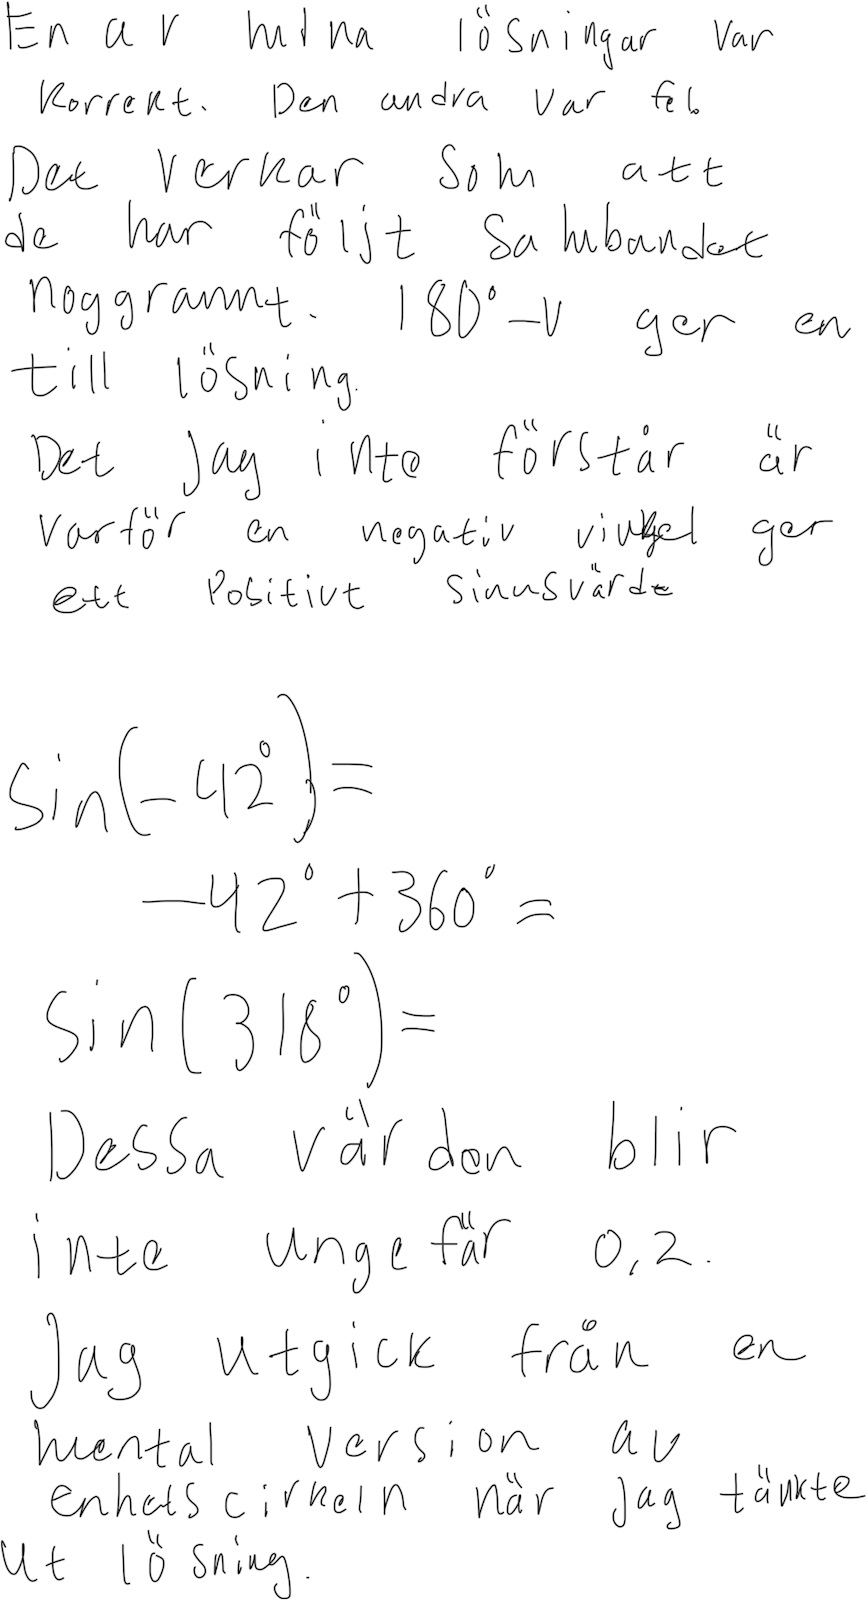 En av mina lösningar var
korrekt. Den andra var fel.
Det verkar som att
de har följt sambandet
noggrannt. 180°-v ger en
till lösning.
Det jag inte förstår är
varför en negativ vinkel ger
ett positivt sinusvärde
sin(-42°)=
-42°+360°=
sin(318°)=
Dessa värden blir
inte ungefär 0,2.
Jag utgick från en
mental version av
enhetscirkeln när jag tänkte
ut lösning.